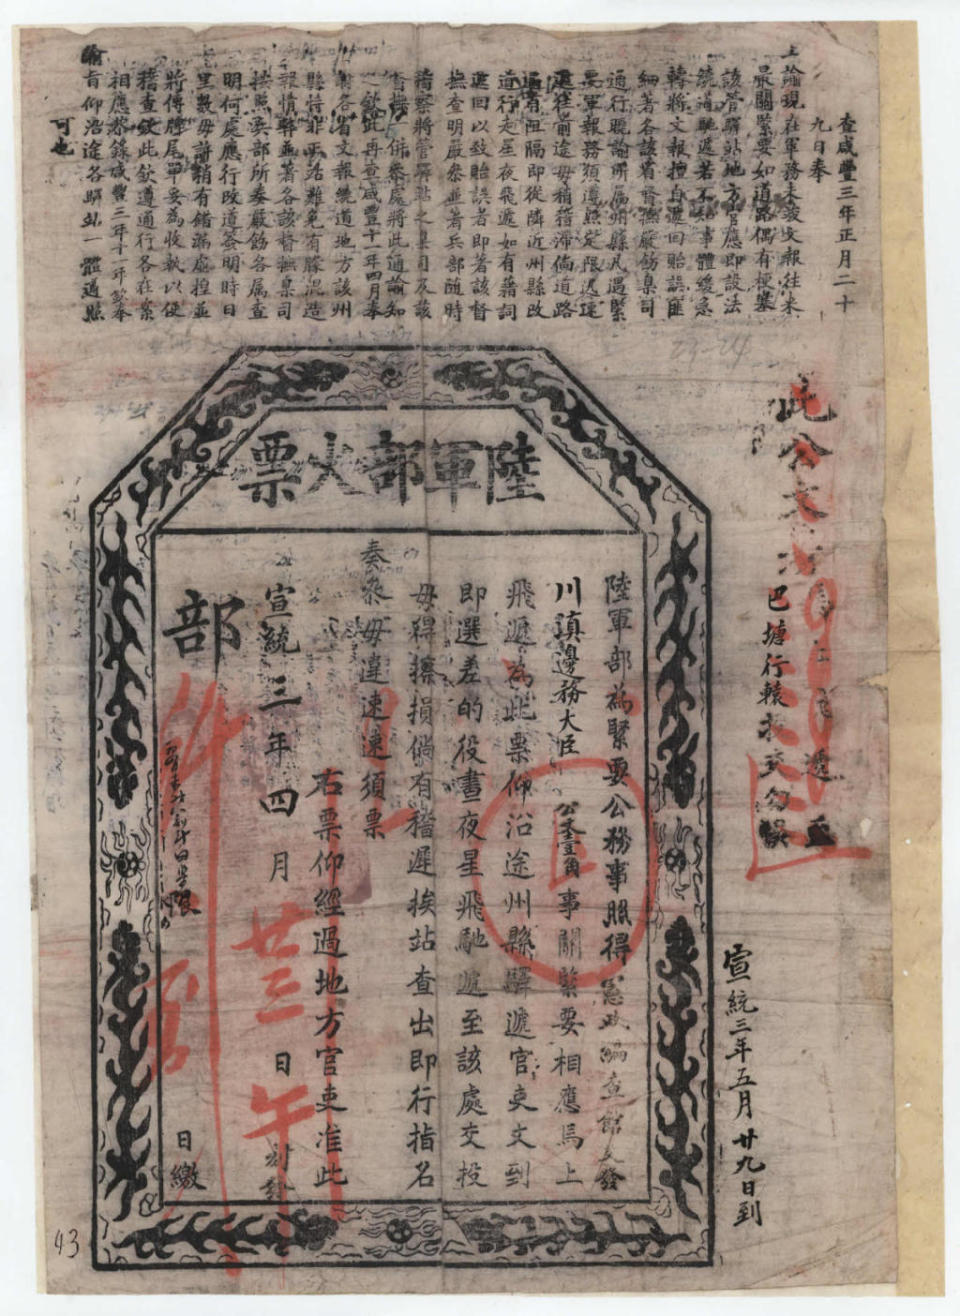 查咸豐三年正月二十
九日奉
上諭現在軍務未竣文報往來
最關緊要如道路偶有梗塞
該管驛站地方官應即設法
繞道馳遞若不知事體緩急
轉將文報擅自遞回貽誤匪
細著各該省督撫嚴飭臬司
通行曉諭所屬州縣凡遇緊
要軍報務須遵照定限迅速
遞往前途毋稍稽滯倘道路
適有阻隔即從隣近州縣改
道行走星夜飛遞如有藉詞
遞回以致貽誤者即著該督
撫查明嚴參並著兵部隨時
稽察將管驛站之臬司及該
欽此再查咸豐十一年四月奉
各省文報繞道地方該州
縣特非正站難免有朦混造
報情弊並著各該督撫臬司
按照兵部所奏嚴飭各屬查
明何處應行改道簽明時日
里數毋許稍有錯漏虛捏並
將傳牌尾單妥為收執以便
稽查欽此欽遵通行各在案
相應恭錄咸豐三年十一年欽奉
諭旨仰沿途各驛站一體遵照
可也
此公文
遞至
巴塘行轅投交勿誤
宣統三年五月廿九日到
陸軍部火票
陸軍部為緊要公務事照得憲政編查館文發
川滇邊務大臣公文壹角事關緊要相應馬上
飛遞為此票仰沿途州縣驛遞官吏文到
即選差的役晝夜星飛馳遞至該處交投
毋得擦損倘有稽遲挨站查出即行指名
奏參毋違速速須票
右票仰經過地方官吏准此
宣統三年四月廿三日午
部
限
日繳
43
23-24